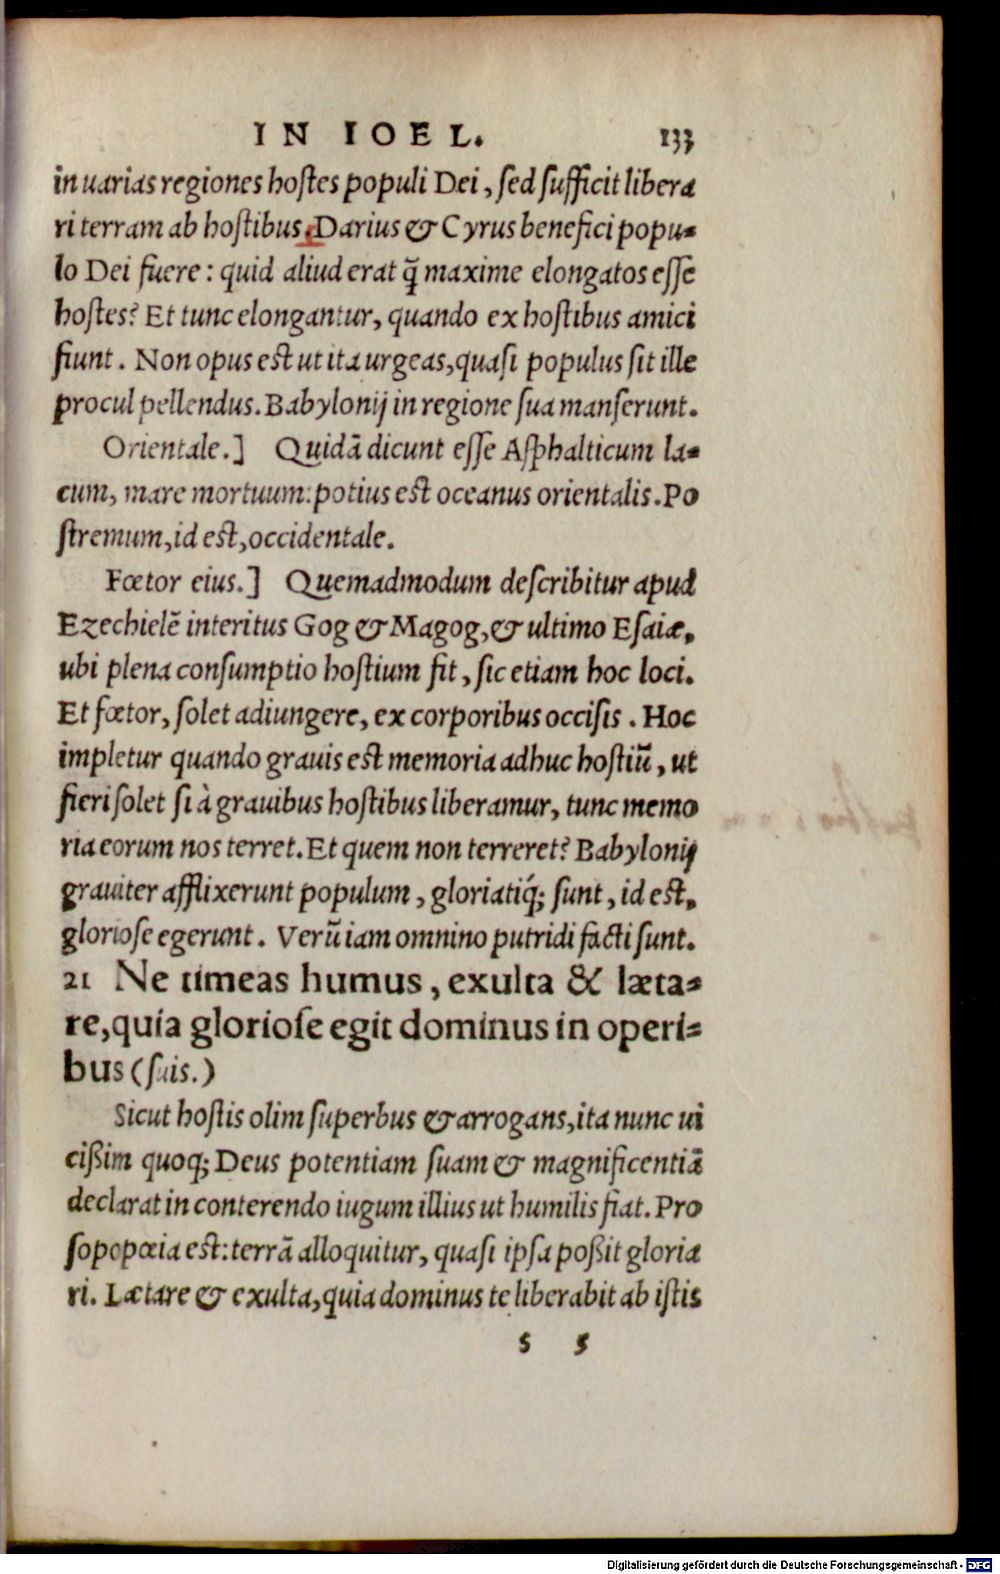 IN IOEL. 133
in uarias regiones hostes populi Dei, sed sufficit libera
ri terram ab hostibus. Darius & Cyrus benefici popu-
lo Dei fuere: quid aliud erat q̃ maxime elongatos esse
hostes? Et tunc elongantur, quando ex hostibus amici
fiunt. Non opus est ut ita urgeas, quasi populus sit ille
procul pellendus. Babylonij in regione sua manserunt.
Orientale.] Quidã dicunt esse Asphalticum la-
cum, mare mortuum: potius est oceanus orientalis. Po
stremum, id est, occidentale.
Fœtor eius.] Quemadmodum describitur apud
Ezechielẽ interitus Gog & Magog, & ultimo Esaiæ,
ubi plena consumptio hostium fit, sic etiam hoc loci.
Et fœtor, solet adiungere, ex corporibus occisis. Hoc
impletur quando grauis est memoria adhuc hostiũ, ut
fieri solet si à grauibus hostibus liberamur, tunc memo
ria eorum nos terret. Et quem non terreret? Babylonij
grauiter afflixerunt populum, gloriatiq́; sunt, id est,
gloriose egerunt. Verũ iam omnino putridi facti sunt.
21 Ne timeas humus, exulta & læta-
re, quia gloriose egit dominus in operi-
bus (suis.)
Sicut hostis olim superbus & arrogans, ita nunc ui
cißim quoq; Deus potentiam suam & magnificentiã
declarat in conterendo iugum illius ut humilis fiat. Pro
sopopœia est: terrã alloquitur, quasi ipsa poßit gloria
ri. Lætare & exulta, quia dominus te liberabit ab istis
s 5
Digitalisierung gefördert durch die Deutsche Forschungsgemeinschaft - DFG